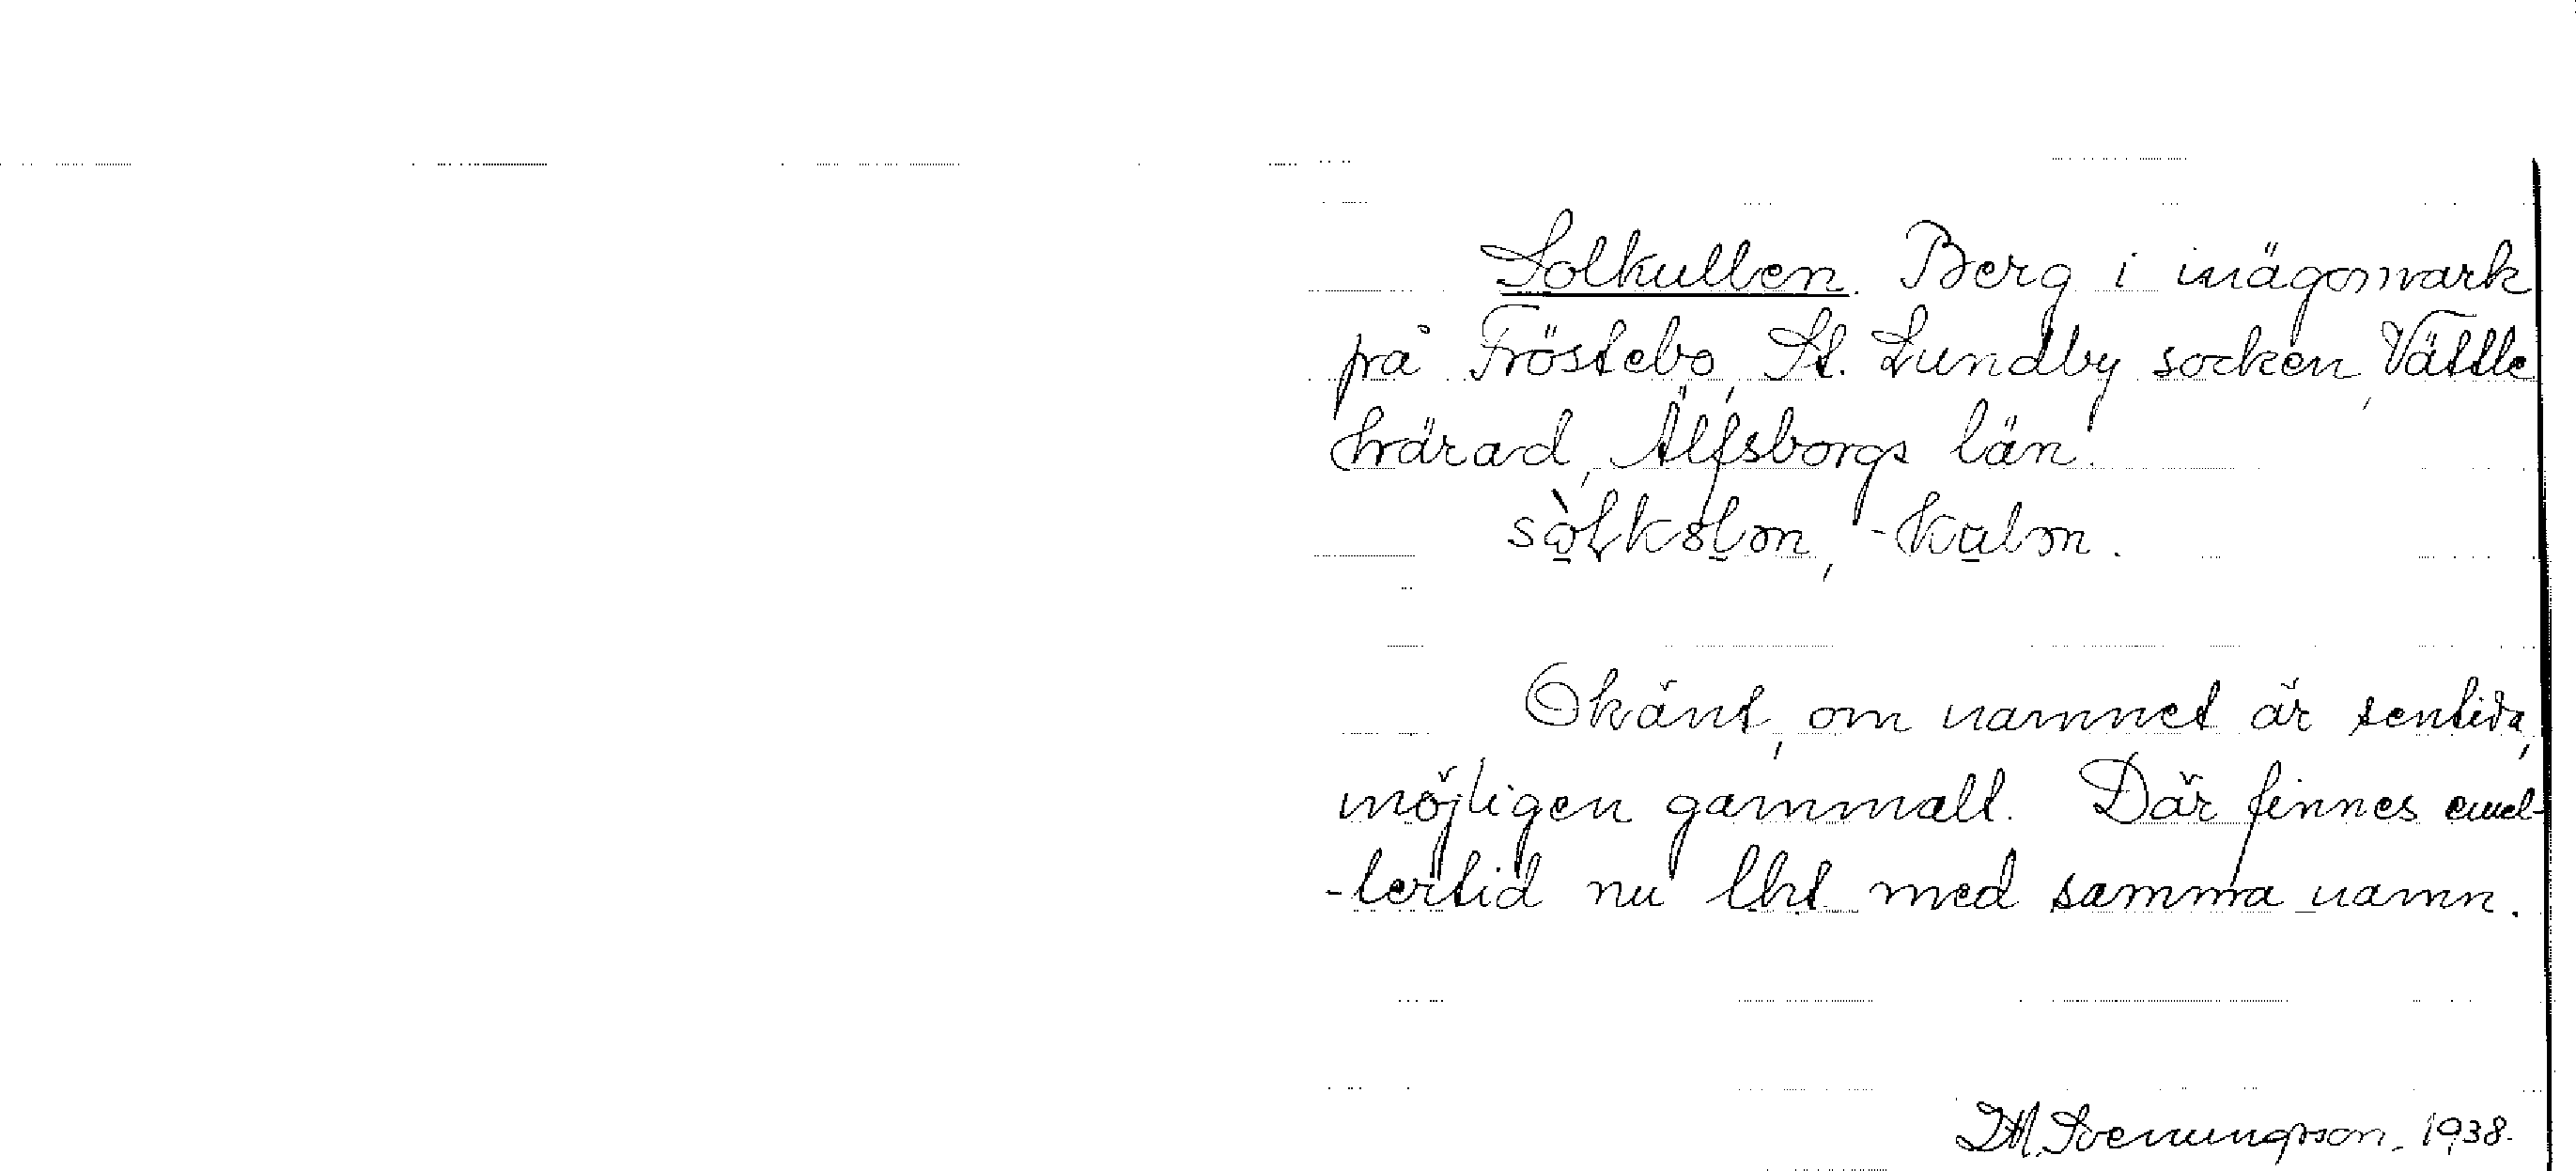 Solkullen. Berg i inägomark
på Fröstebo, St. Lundby socken, Vättle
härad, Älfsborgs län.
Okänt, om namnet är sentida,
möjligen gammalt. Där finnes emel-
-lertid nu lht med samma namn.
Svenungsson. 1938.